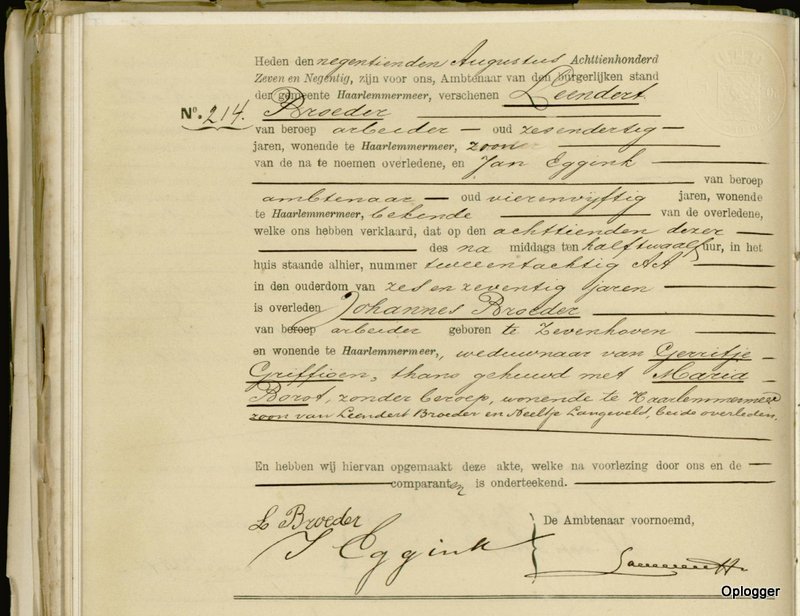 Heden den negentienden Augustus Achttienhonderd
Zeven en Negentig, zijn voor ons, Ambtenaar van den burgerlijken stand
der gemeente Haarlemmermeer, verschenen Leendert
No. 214. Broeder
van beroep arbeider oud zesendertig
jaren, wonende te Haarlemmermeer, zoon
van de na te noemen overledene, en Jan Eggink
van beroep
ambtenaar oud vierenvijftig jaren, wonende
te Haarlemmermeer, bekende van de overledene,
welke ons hebben verklaard, dat op den achttienden dezer
des na middags ten half twaalf uur, in het
huis staande alhier, nummer tweeentachtig AA
in den ouderdom van zes en zeventig jaren
is overleden Johannes Broeder
van beroep arbeider geboren te Zevenhoven
en wonende te Haarlemmermeer, weduwnaar van Gerritje
Griffioen, thans gehuwd met Maria
Borot, zonder beroep, wonende te Haarlemmermeer
zoon van Leendert Broeder en Neeltje Langeveld, beide overleden.
En hebben wij hiervan opgemaakt deze akte, welke na voorlezing door ons en de
comparanten is onderteekend.
L Broeder De Ambtenaar voornoemd,
J Eggink
Oplogger